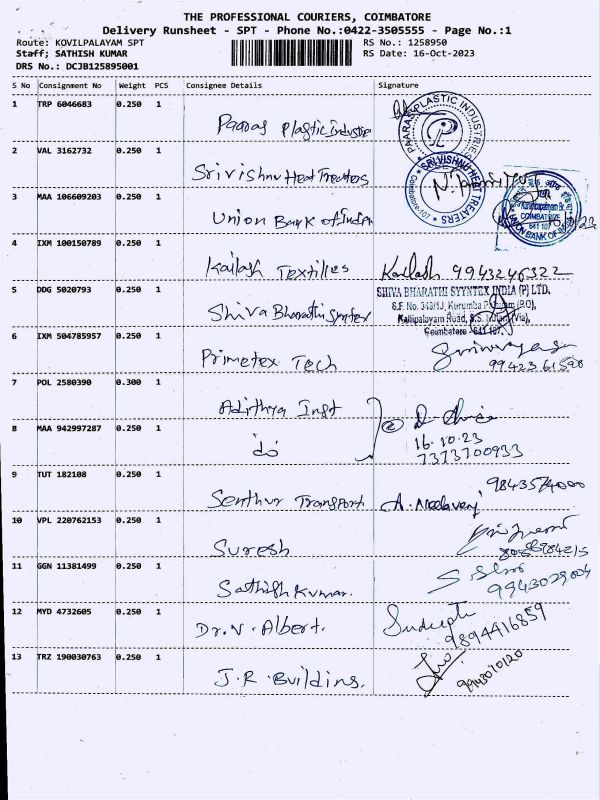 THE PROFESSIONAL COURIERS, COIMBATORE
Delivery Runsheet - SPT - Phone No.:0422-3505555 - Page No.:1
Route: KOVILPALAYAM SPT
Staff; SATHISH KUMAR
DRS No.: DCJB125895001
RS No.: 1258950
RS Date: 16-Oct-2023
S No Consignment No Weight PCS Consignee Details Signature
1 TRP 6046683 0.250 1 Paaras Plastic Industries
PAARAS PLASTIC INDUSTRIES
2 VAL 3162732 0.250 1 Sri vishnu Heat Treaters
SRI VISHNU HEAT TREATERS
Coimbatore-107
3 MAA 106609203 0.250 1 Union Bank of India
COIMBATORE
641 107
UNION BANK OF INDIA
4 IXM 100150789 0.250 1 Kailash Textiles Kailash 9943246322
5 DDG 5020793 0.250 1 Shiva Bharathi Syntex
SHIVA BHARATHI SYYNTEX INDIA (P) LTD.
S.F. No. 349/1J, Kurumba Palayam (P.O),
Kallipalayam Road, S.S. Kulam (Via),
Coimbatore - 641 107.
6 IXM 504785957 0.250 1 Primetex Tech
7 POL 2580390 0.300 1 Adithya Inst
8 MAA 942997287 0.250 1 do
16.10.23
7373700933
9 TUT 182108 0.250 1 Senthur Transport. A. Neelaveni
9843574000
10 VPL 220762153 0.250 1 Suresh
11 GGN 11381499 0.250 1 Sathish Kumar.
9943029004
12 MYD 4732605 0.250 1 Dr. V. Albert. Sudeepth
9894416859
13 TRZ 190030763 0.250 1 J.R. Building.
9943070120